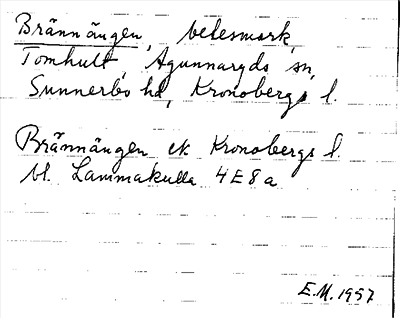 Brännängen, betesmark,
Tomhult, Agunnaryds sn,
Sunnerbo hd, Kronobergs l.
Brännängen ek Kronobergs l.
bl. Lammakulla 4E8a
E.M. 1957